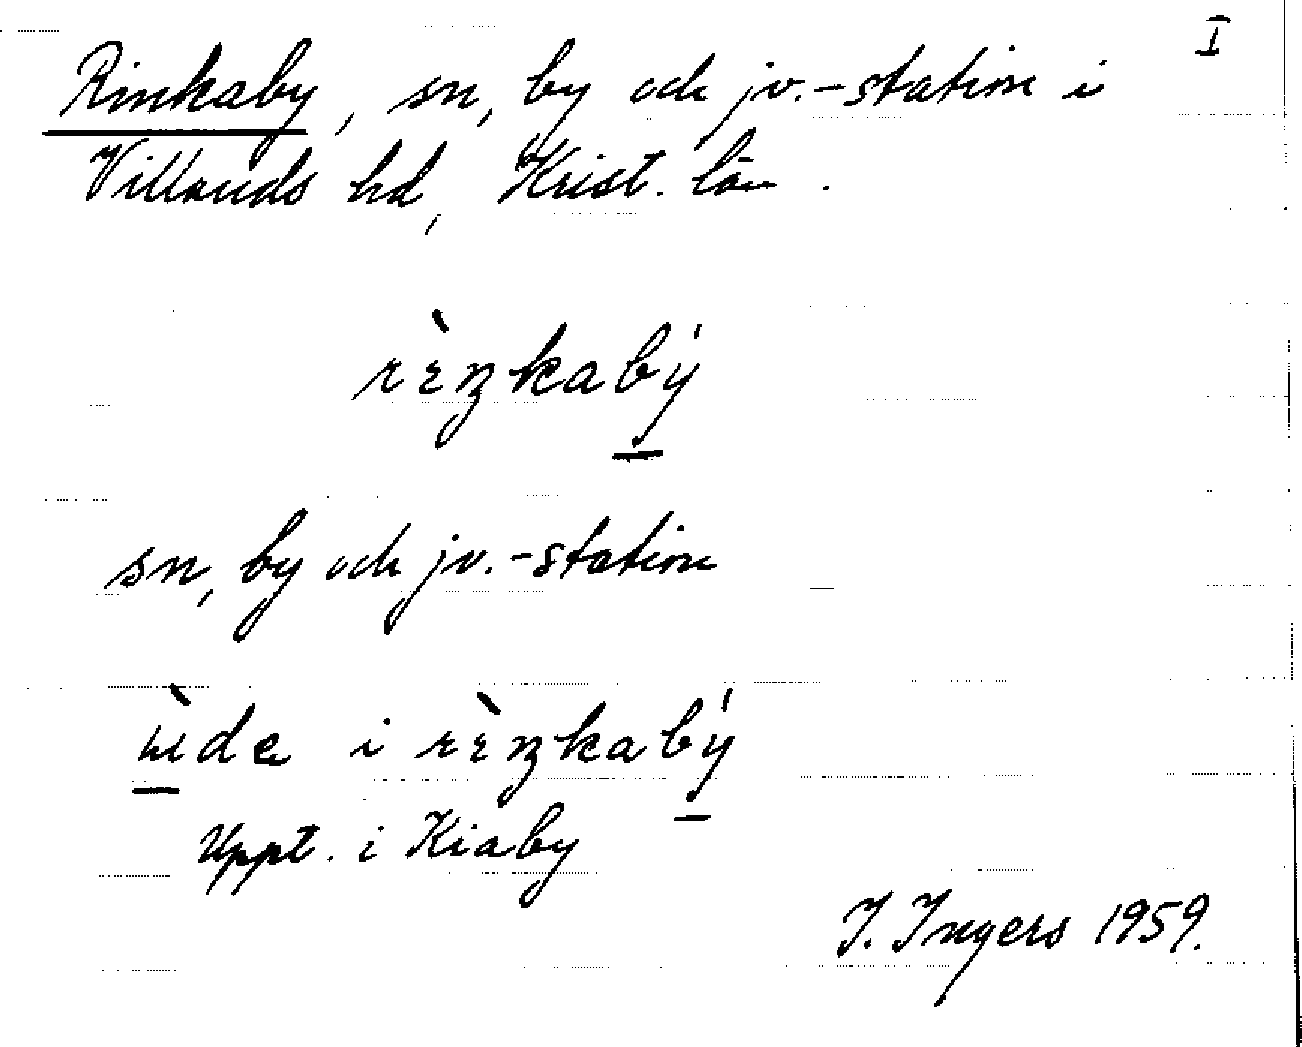 I
Rinkaby, sn, by och jv.-station i
Villands hd, Krist. län.
rɛ̀ŋkabý
sn, by och jv.-station
ɯ̀de i rɛ̀ŋkabý
Uppt. i Kiaby
I. Ingers 1959.